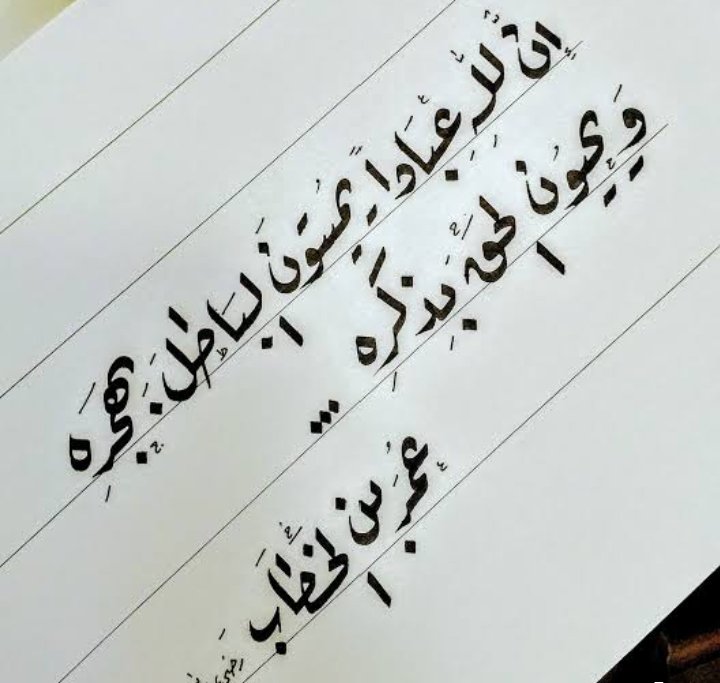 إنَّ لِلّهِ عِبَادًا يُمِيتُونَ البَاطِلَ بِهَجْرِهِ
وَيُحْيُونَ الحَقَّ بِذِكْرِهِ ...
عُمَرُ بن الخَطَّاب